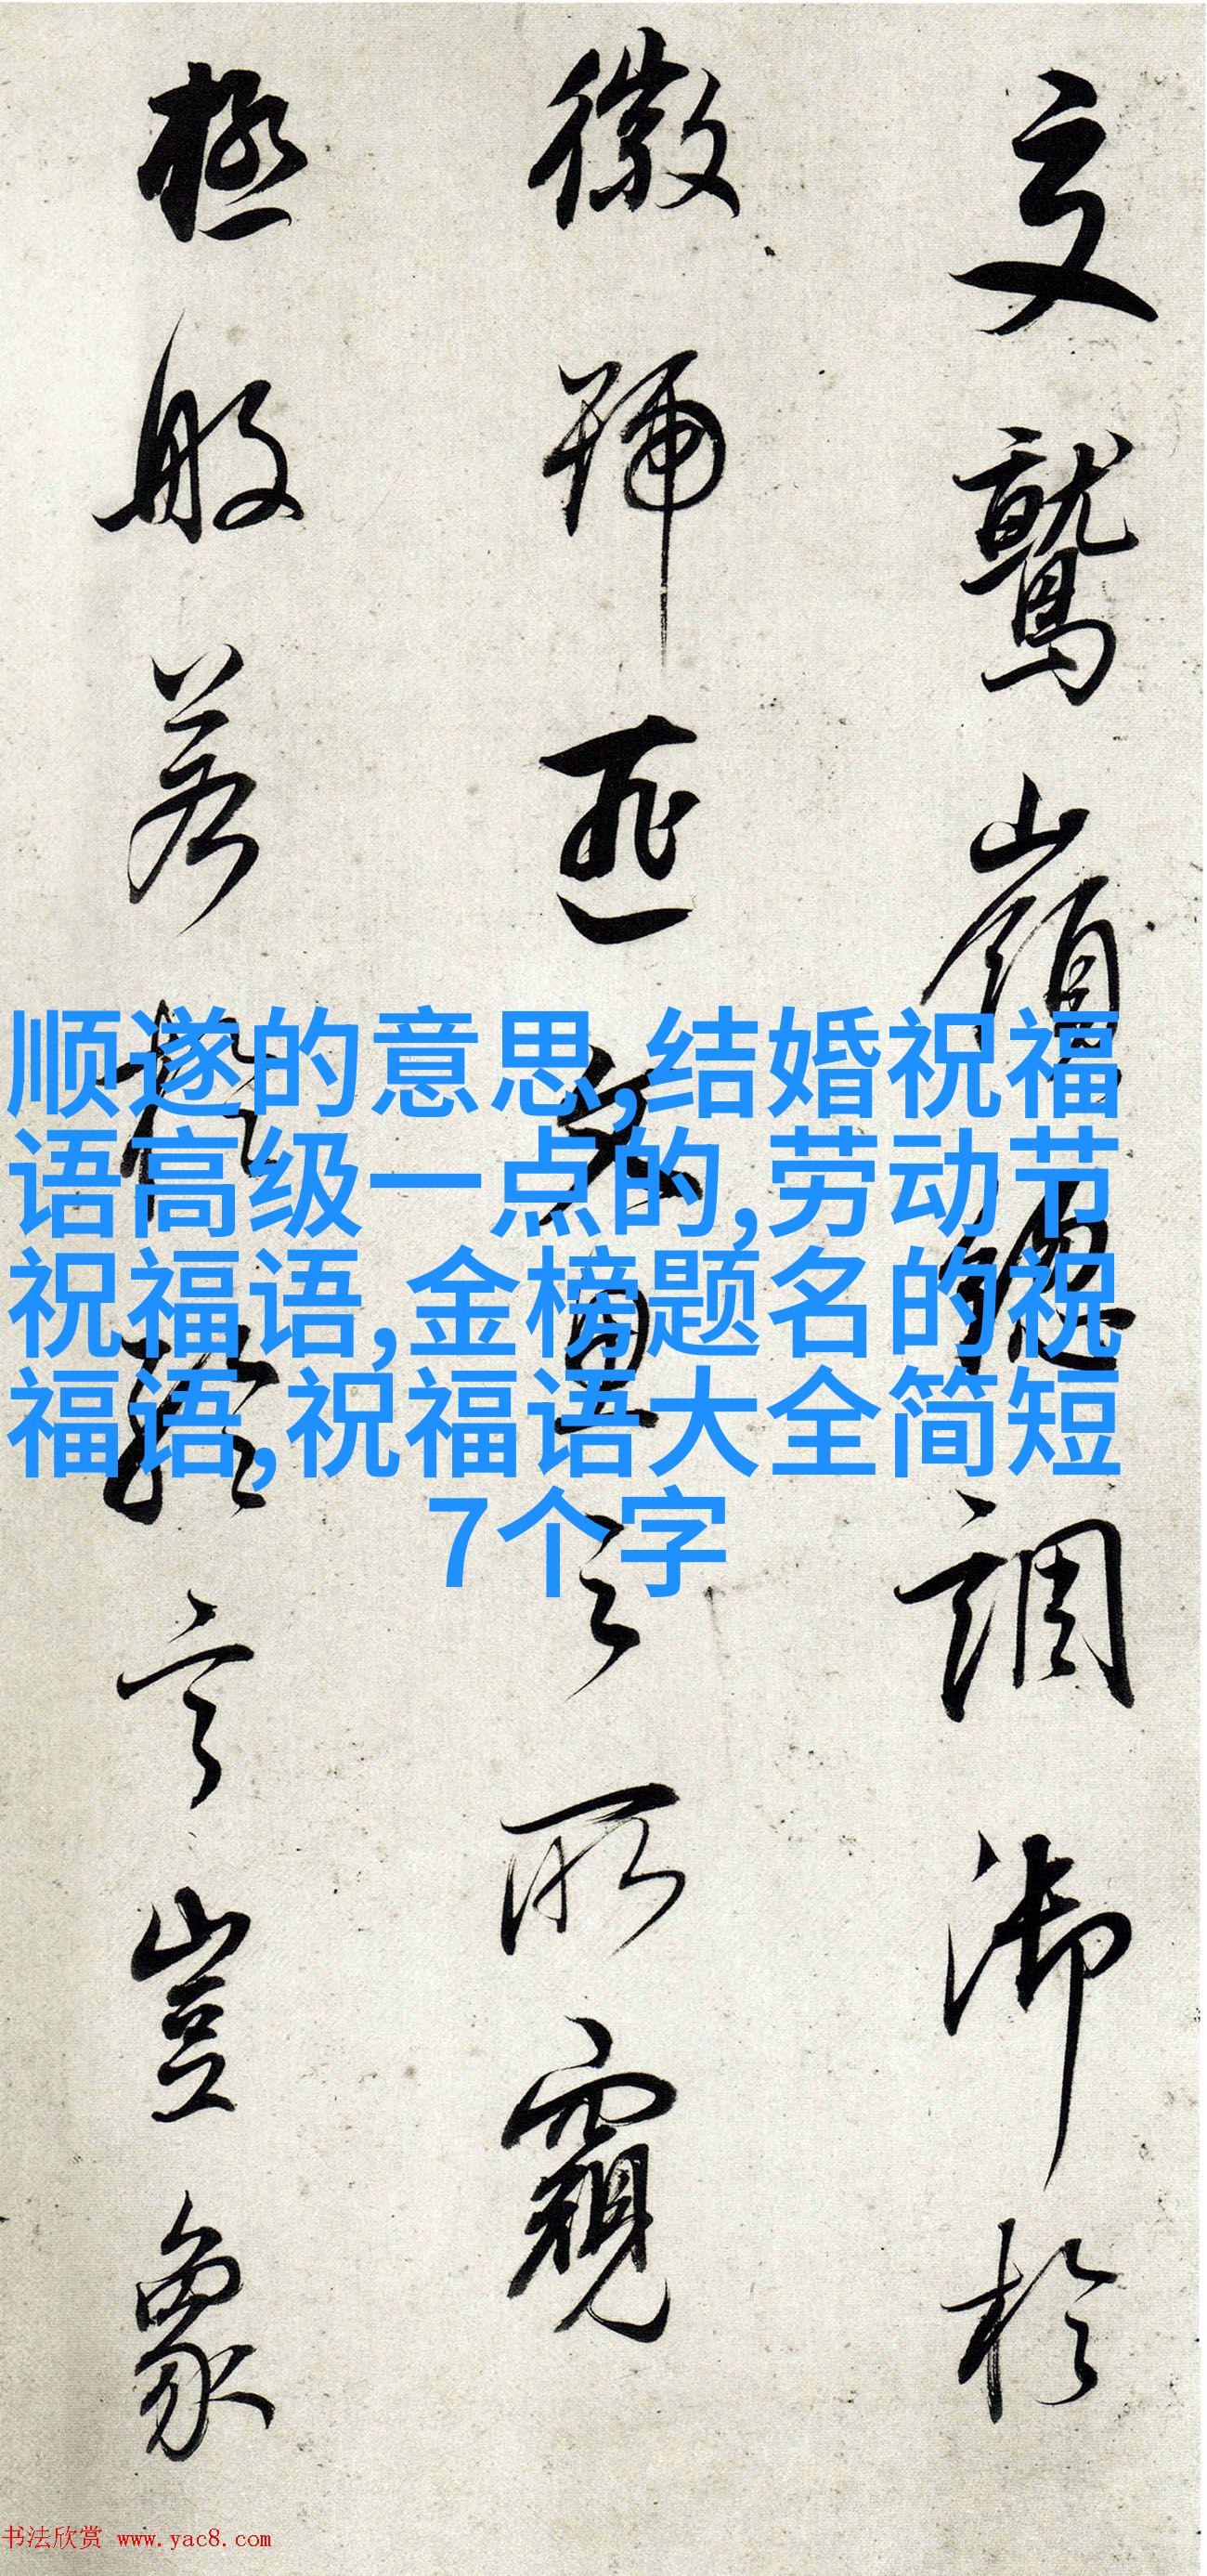 鷲嶺調御於
徽號匪之所窺
極般若言豈象
顺遂的意思,结婚祝福
语高级一点的,劳动节
祝福语,金榜题名的祝
福语,祝福语大全简短
7个字
书法欣赏 www.yac8.com